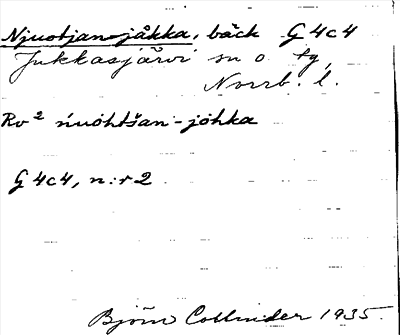 Njuotjanjåkka, bäck G 4c4
Jukkasjärvi sn o. tg,
Norrb. l.
Rv² ńuohtšan-johka
G 4c4, n:r 2
Björn Collinder 1935.